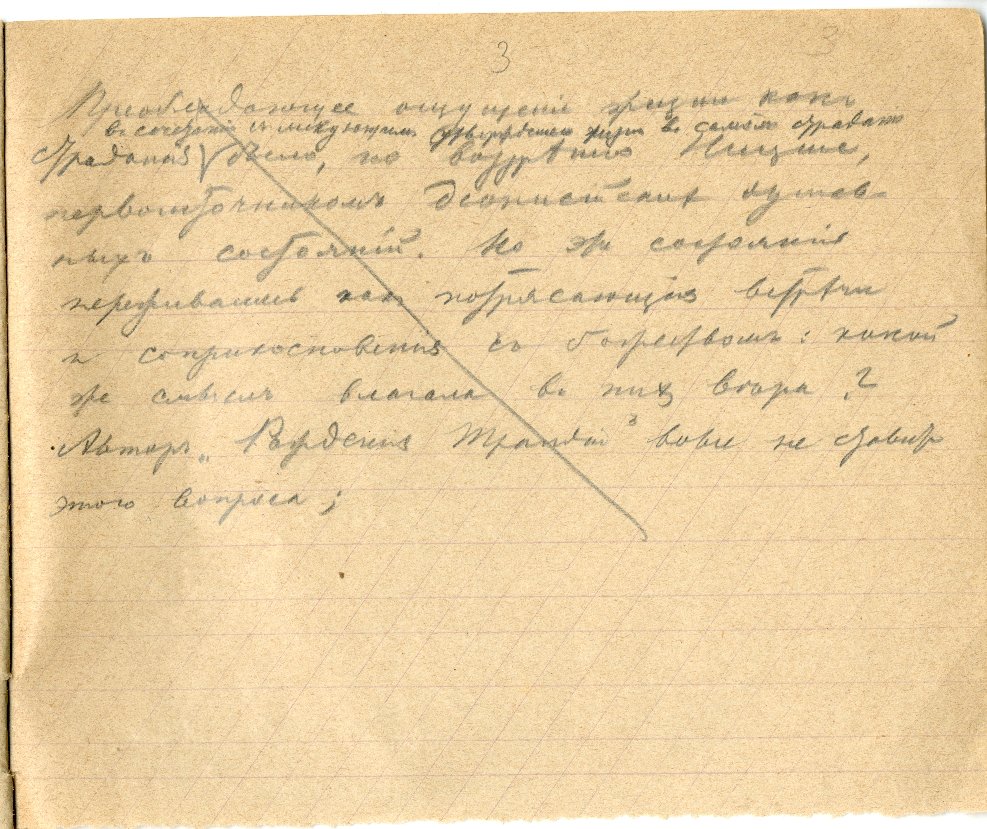 3
Преобладающее ощущеніе жизни какъ
въ сочетаніи съ ликующимъ утвержденіемъ жизни въ самомъ страданіи
страданія было, по воззрѣнію Ницше,
первоисточникомъ діонисійскихъ душев-
ныхъ состояній. Но эти состоянія
переживались какъ потрясающія встрѣчи
и соприкосновенія съ божествомъ: какой
же смыслъ влагала въ нихъ вѣра?
Авторъ „Рожденія Трагедіи" вовсе не ставитъ
этого вопроса;